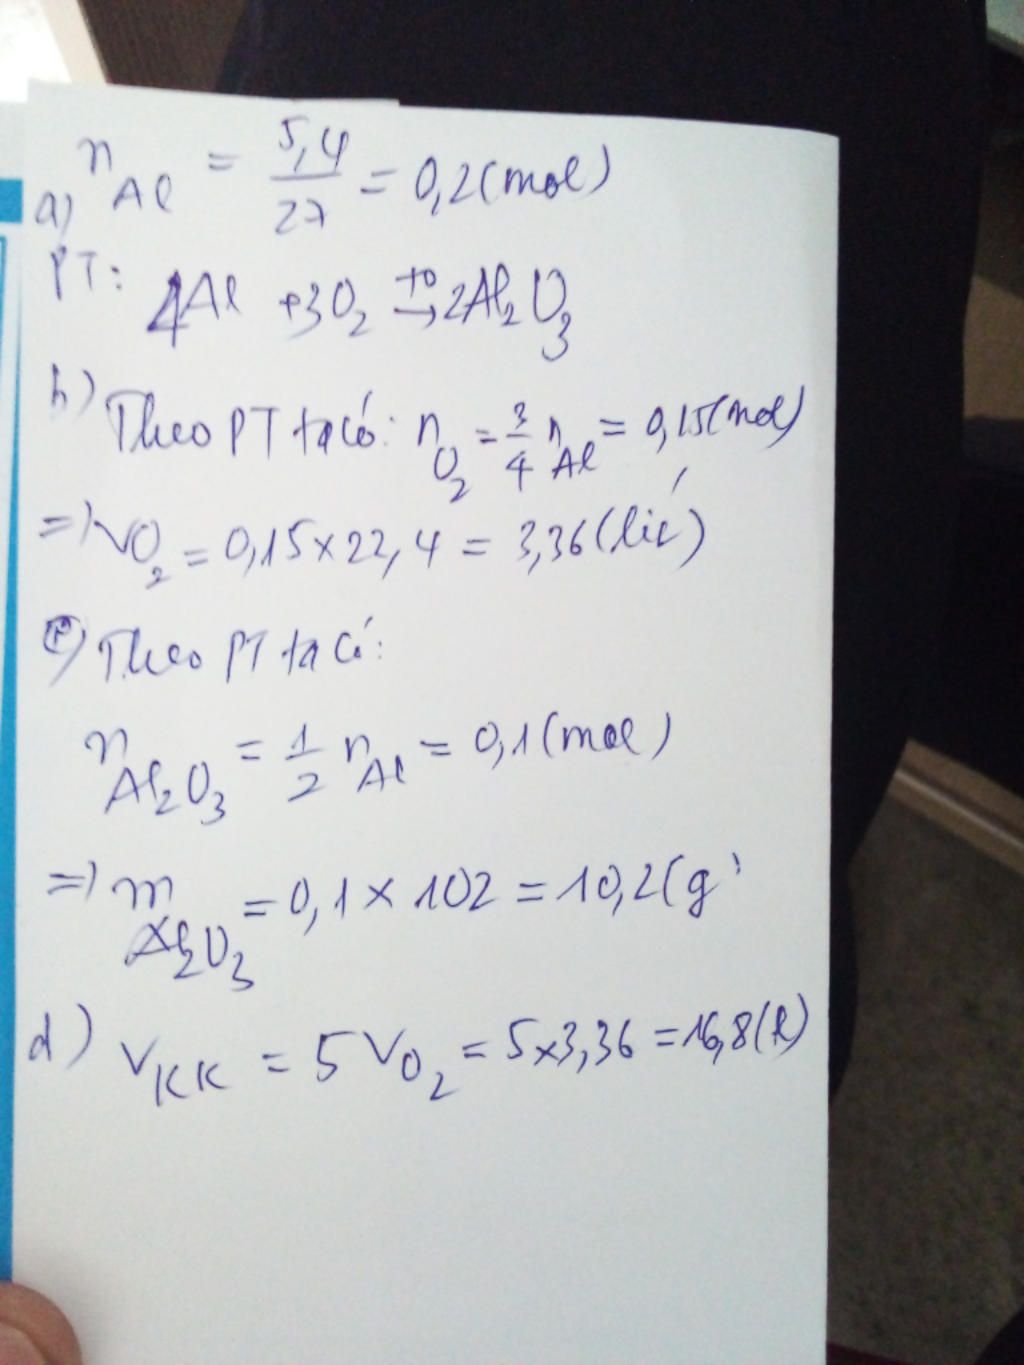 a) n Al = 5,4/27 = 0,2(mol)
PT: 4Al + 3O2 to→ 2Al2O3
b) Theo PT ta có: nO2 = 3/4 nAl = 0,15(mol)
=) VO2 = 0,15 x 22,4 = 3,36 (lít)
c) Theo PT ta có:
nAl2O3 = 1/2 nAl = 0,1 (mol)
=) mAl2O3 = 0,1 x 102 = 10,2 (g)
d) VKK = 5 VO2 = 5x3,36 = 16,8 (l)